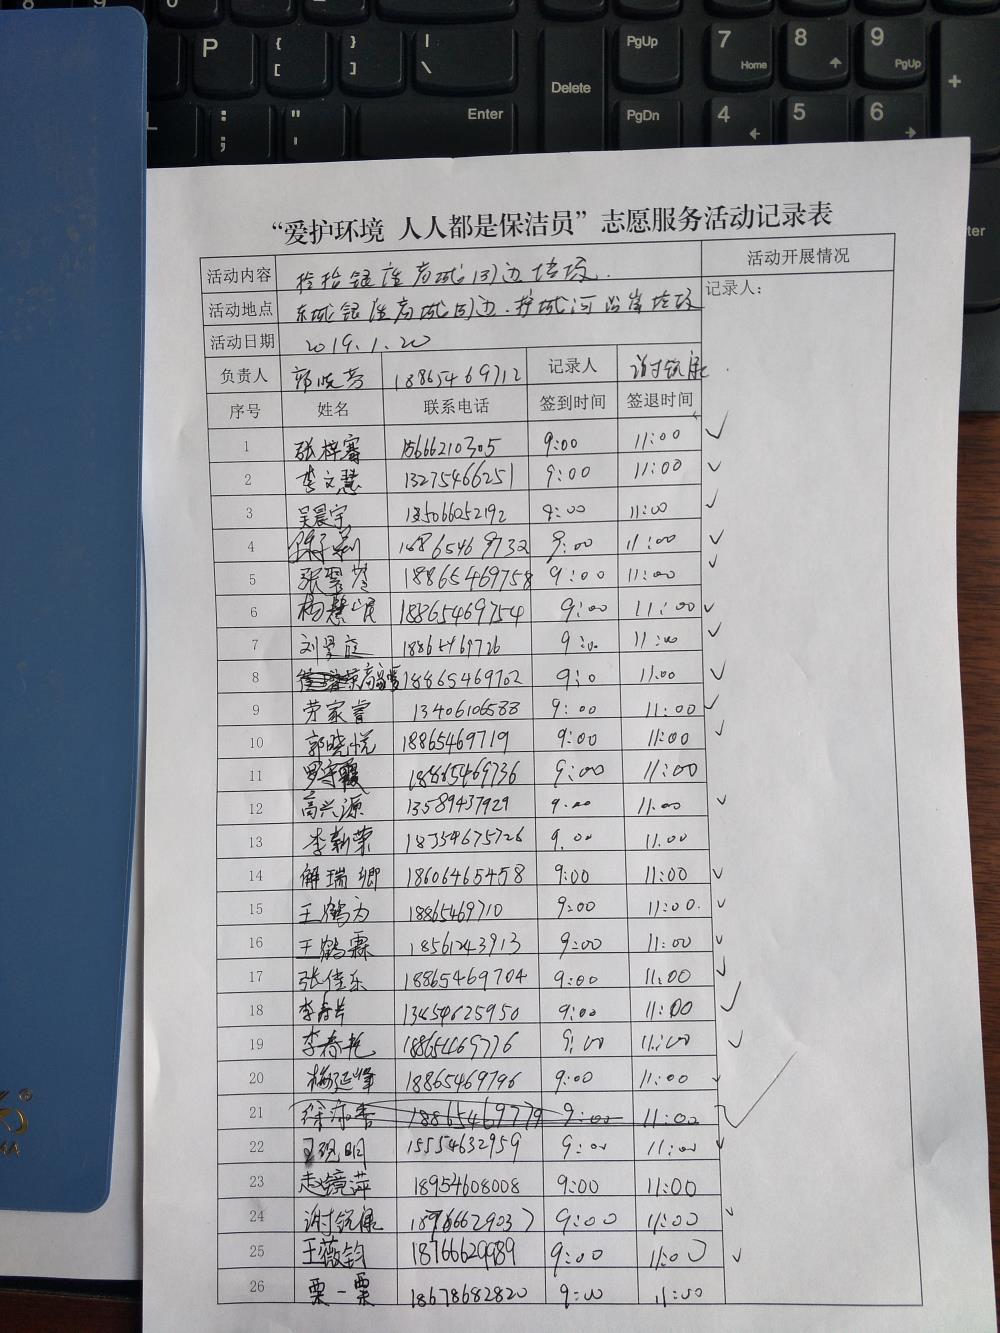 8 9 0
P { [ } ] | \ PgUp 7 Home 8 9 PgUp +
Delete
L : ; " ' Enter PgDn 4 5 6
ter
“爱护环境 人人都是保洁员”志愿服务活动记录表
活动内容 捡拾银座商城周边垃圾. 活动开展情况
活动地点 东城银座商城周边.护城河沿岸垃圾 记录人:
活动日期 2019.1.20
负责人 郭晓芳 18865469712 记录人 谢锐康
序号 姓名 联系电话 签到时间 签退时间
1 张梓骞 15666210305 9:00 11:00 ✓
2 李文慧 13275466251 9:00 11:00 ✓
3 吴晨宇 135066052192 9:00 11:00 ✓
4 18865469732 9:00 11:00 ✓
5 张翠苓 18865469758 9:00 11:00 ✓
6 杨慧岷 18865469754 9:00 11:00 ✓
7 刘景庭 18865469726 9:00 11:00 ✓
8 18865469702 9:0 11:00 ✓
9 劳家睿 13406106588 9:00 11:00 ✓
10 郭晓悦 18865469719 9:00 11:00 ✓
11 罗守霞 18865469736 9:00 11:00
12 高兴源 13589437929 9:00 11:00 ✓
13 李新荣 18354675726 9.00 11.00
14 解瑞卿 18606465458 9:00 11:00 ✓
15 王鹤为 18865469710 9:00 11:00. ✓
16 王鹤霖 18561243913 9:00 11:00 ✓
17 张佳乐 18865469704 9:00 11:00 ✓
18 李春芳 13454625950 9:00 11:00 ✓
19 李春艳 18865469776 9:00 11:00 ✓
20 梅延峰 18865469796 9:00 11:00 ✓
21 徐亦杏 18865469779 9:00 11:00
22 王砚明 15554632959 9:00 11:00 ✓
23 赵镜萍 18954608008 9:00 11:00
24 谢锐康 189766629037 9:00 11:00 ✓
25 王薇钧 18766629989 9:00 11:00 ✓
26 栗一栗 18678682820 9:00 11:00